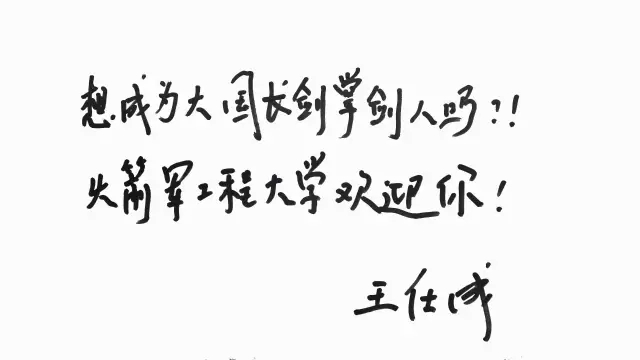 想成为大国长剑掌剑人吗?!
火箭军工程大学欢迎你!
王仕成